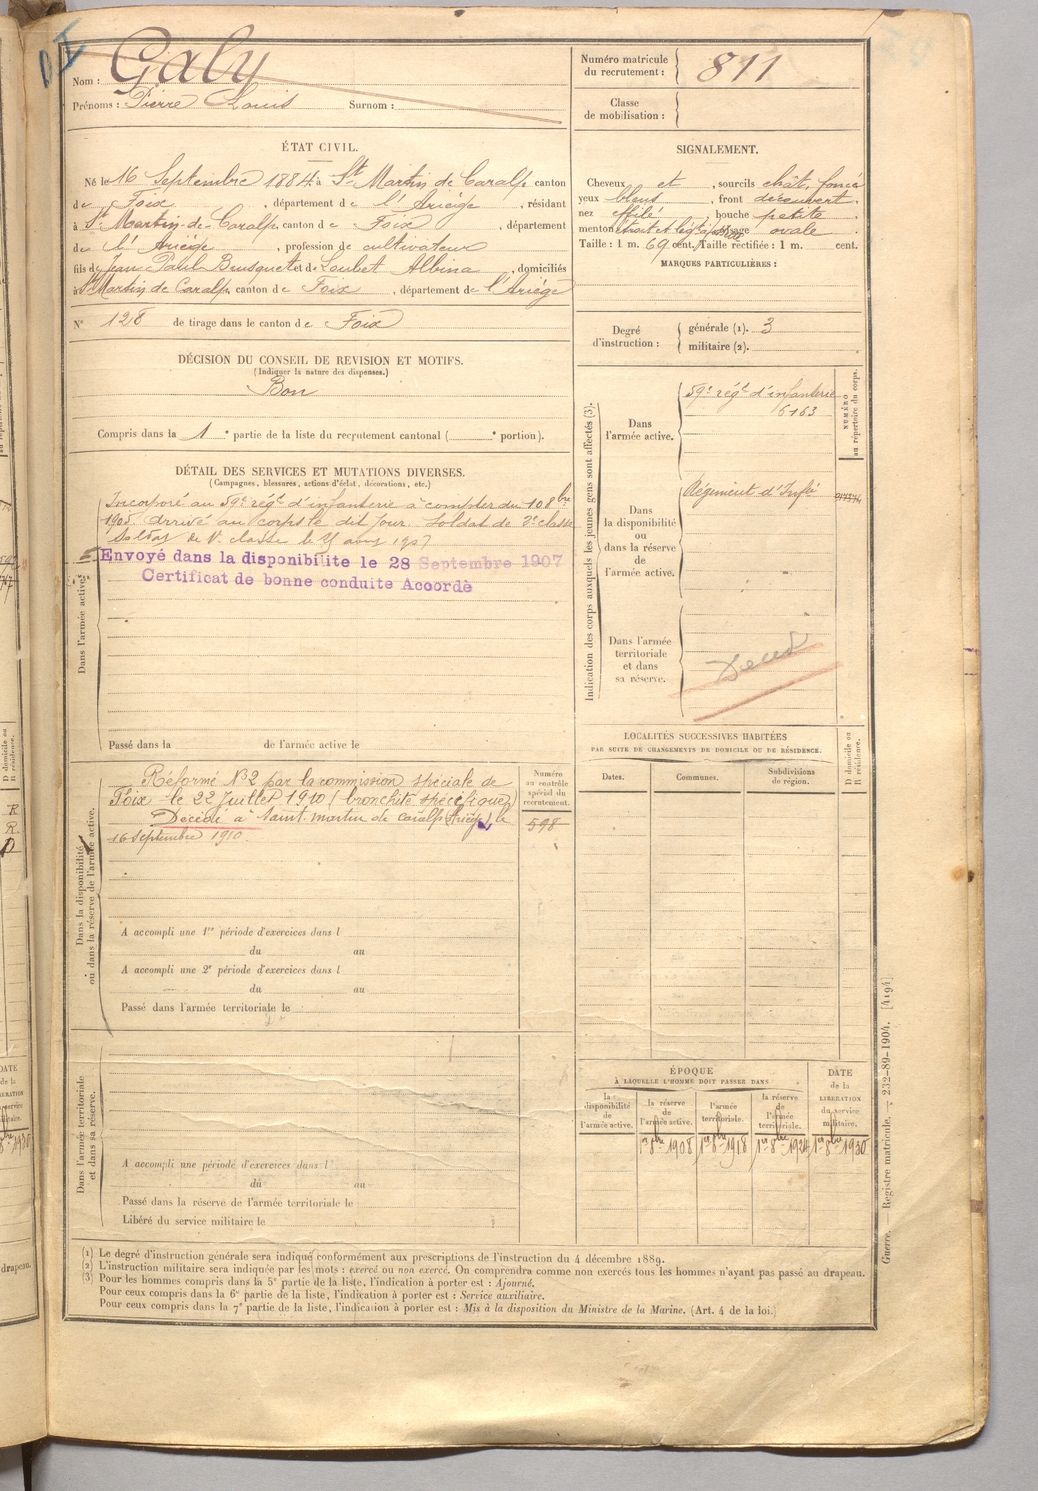 Nom : Galy
Prénoms : Pierre Louis Surnom :
Numéro matricule du recrutement : 811
Classe de mobilisation :
ÉTAT CIVIL.
Né le 16 Septembre 1884 à St Martin de Caralp canton
de Foix, département de l'Ariège, résidant
à St Martin-de-Caralp, canton de Foix, département
de l'Ariège, profession de cultivateur
fils de Jean Paul Brusquet et de Loubet Albina, domiciliés
à St Martin de Caralp, canton de Foix, département de l'Ariège
N° 128 de tirage dans le canton de Foix
DÉCISION DU CONSEIL DE REVISION ET MOTIFS.
(Indiquer la nature des dispenses.)
Bon
Compris dans la 1e partie de la liste du recrutement cantonal ( e portion).
SIGNALEMENT.
Cheveux et, sourcils chât. foncé
yeux bleus, front découvert.
nez effilé, bouche petite
menton visage ovale.
Taille : 1 m. 69 cent. Taille rectifiée : 1 m. cent.
MARQUES PARTICULIÈRES :
Degré d'instruction : générale (1). 3
militaire (2).
Indication des corps auxquels les jeunes gens sont affectés (3).
NUMÉRO au répertoire du corps.
Dans l'armée active.
59e régt d'infanterie
6163
Dans la disponibilité ou dans la réserve de l'armée active.
Régiment d'Infie
Dans l'armée territoriale et dans sa réserve.
Décédé
DÉTAIL DES SERVICES ET MUTATIONS DIVERSES.
(Campagnes, blessures, actions d'éclat, décorations, etc.)
Dans l'armée active.
Incorporé au 59e régt d'infanterie à compter du 10 8bre
1905. arrivé au corps le dit jour. Soldat de 2e classe
Soldat de 1e classe le 1907
Envoyé dans la disponibilité le 28 Septembre 1907
Certificat de bonne conduite Accordé
Passé dans la de l'armée active le
Dans la disponibilité ou dans la réserve de l'armée active.
Numéro au contrôle spécial du recrutement.
598
Réformé N°2 par la commission spéciale de
Foix le 22 Juillet 1910 (bronchite spécifique)
Décédé à Saint martin de caralp (Ariège) le
16 septembre 1910.
A accompli une 1re période d'exercices dans l
du au
A accompli une 2e période d'exercices dans l
du au
Passé dans l'armée territoriale le
Dans l'armée territoriale et dans sa réserve.
A accompli une période d'exercices dans l
du au
Passé dans la réserve de l'armée territoriale le
Libéré du service militaire le
LOCALITÉS SUCCESSIVES HABITÉES
PAR SUITE DE CHANGEMENTS DE DOMICILE OU DE RÉSIDENCE.
D domicile ou R résidence.
Dates. Communes. Subdivisions de région.
ÉPOQUE
À LAQUELLE L'HOMME DOIT PASSER DANS
DATE de la LIBÉRATION du service militaire.
la disponibilité de l'armée active.
la réserve de l'armée active.
l'armée territoriale.
la réserve de l'armée territoriale.
1er 8bre 1908 1er 8bre 1918 1er 8bre 1924 1er 8bre 1930
(1) Le degré d'instruction générale sera indiqué conformément aux prescriptions de l'instruction du 4 décembre 1889.
(2) L'instruction militaire sera indiquée par les mots : exercé ou non exercé. On comprendra comme non exercés tous les hommes n'ayant pas passé au drapeau.
(3) Pour les hommes compris dans la 5e partie de la liste, l'indication à porter est : Ajourné.
Pour ceux compris dans la 6e partie de la liste, l'indication à porter est : Service auxiliaire.
Pour ceux compris dans la 7e partie de la liste, l'indication à porter est : Mis à la disposition du Ministre de la Marine. (Art. 4 de la loi.)
Guerre. — Registre matricule. — 232-89-1904. [4194]